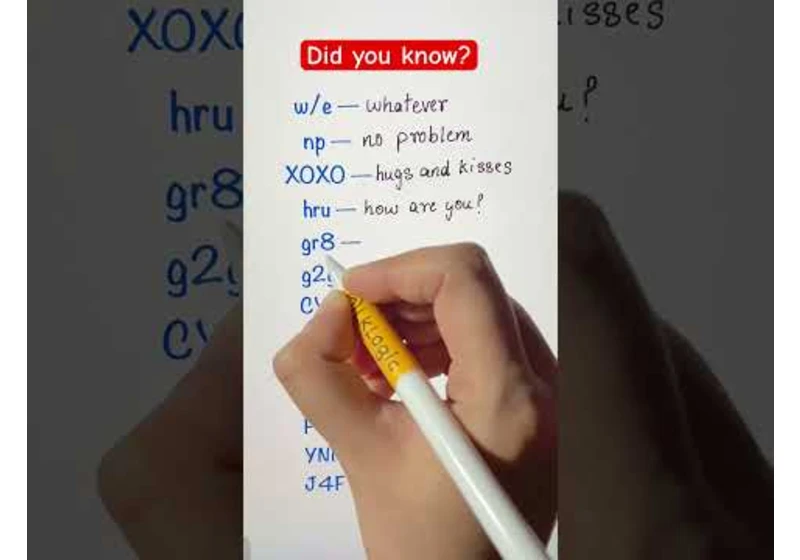 Did you know?
w/e — whatever
np — no problem
XOXO — hugs and kisses
hru — how are you?
gr8 —
g2
J4F